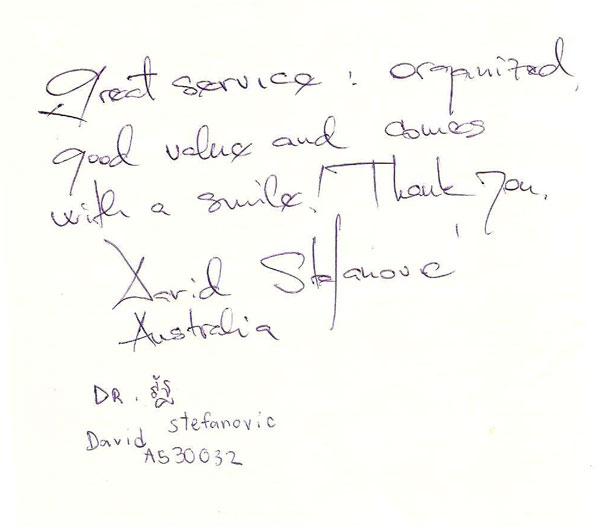 Great service : organized,
good value and comes
with a smile! Thank you.
David Stefanovic
Australia
DR. รัฐ
Stefanovic
David
A530032